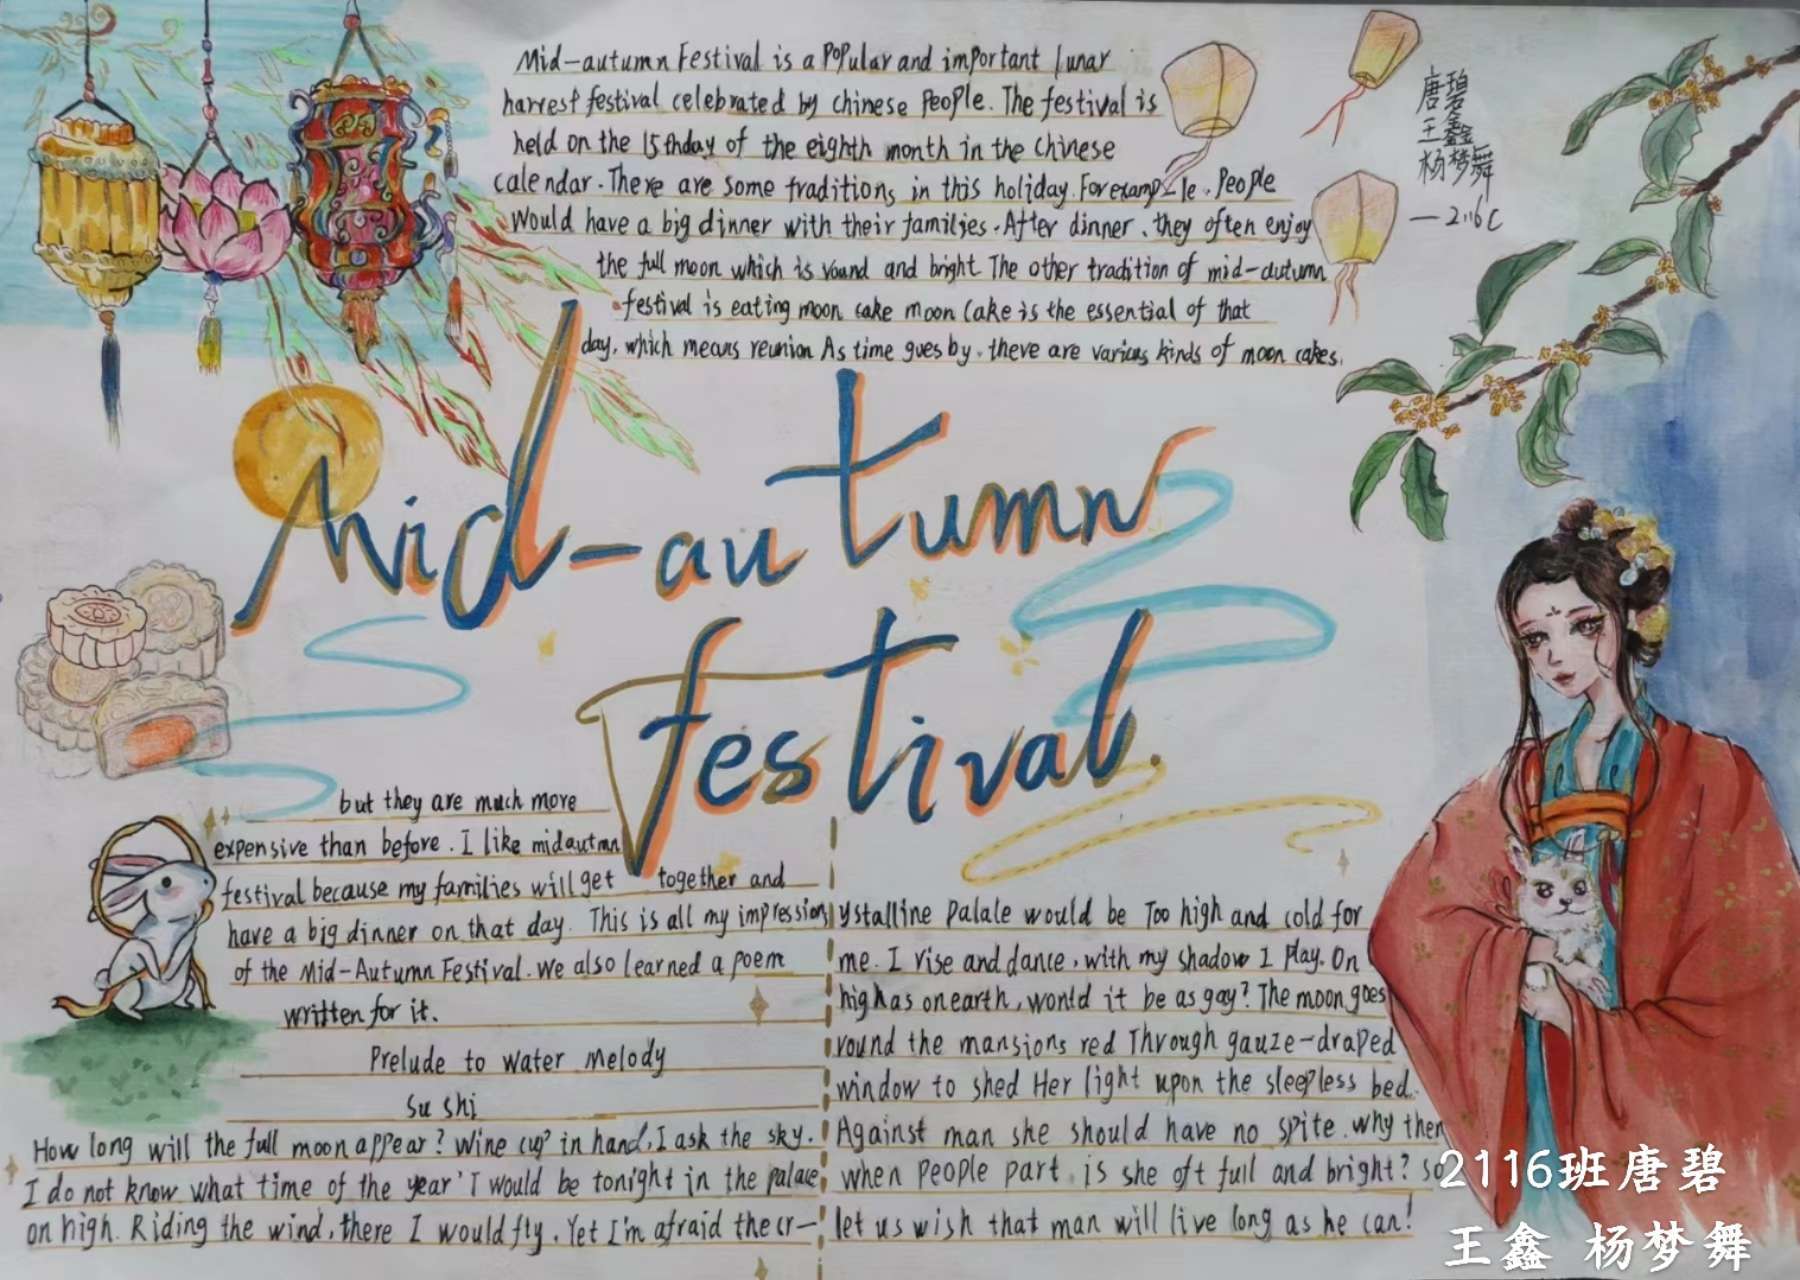 Mid-autumn Festival is a Popular and important lunar
harvest festival celebrated by chinese People. The festival is
held on the 15thday of the eighth month in the chinese
calendar. There are some traditions in this holiday. For examp-le, People
Would have a big dinner with their families. After dinner, they often enjoy
the full moon which is round and bright The other tradition of mid-autumn
festival is eating moon cake moon Cake is the essential of that
day, which means reunion As time goes by, there are various kinds of moon cakes.
唐碧
王鑫
杨梦舞
—2116C
Mid-autumn
festival.
but they are much more
expensive than before. I like midautmn
festival because my families will get together and
have a big dinner on that day. This is all my impression
of the Mid-Autumn Festival. We also learned a poem
written for it.
Prelude to water Melody
Su shi
How long will the full moon appear? Wine cup in hand, I ask the sky.
I do not know what time of the year 'T would be tonight in the palace
on high. Riding the wind, there I would fly, Yet I'm afraid the cr-
ystalline Palale would be Too high and cold for
me. I rise and dance, with my shadow I Play. On
high as on earth, would it be as gay? The moon goes
round the mansions red Through gauze-draped
window to shed Her light upon the sleepless bed.
Against man she should have no spite. why then
when People part, is she oft full and bright? so
let us wish that man will live long as he can!
2116班唐碧
王鑫 杨梦舞